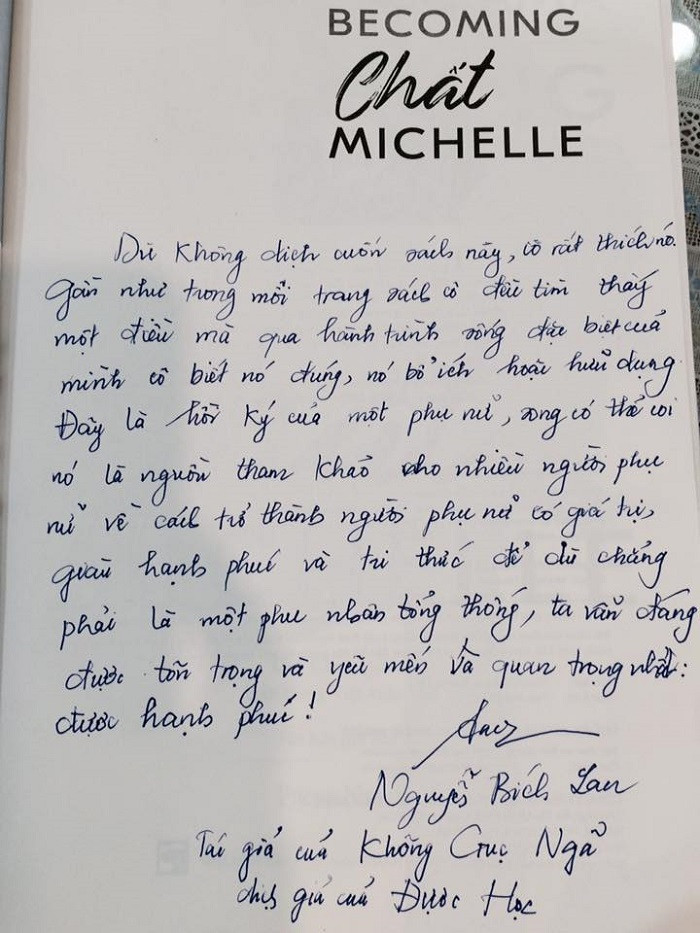 BECOMING
Chất
MICHELLE
Dù không dịch cuốn sách này, cô rất thích nó.
Gần như trong mỗi trang sách cô đều tìm thấy
một điều mà qua hành trình sống đặc biệt của
mình cô biết nó đúng, nó bổ ích hoặc hữu dụng
Đây là hồi ký của một phụ nữ, song có thể coi
nó là nguồn tham khảo cho nhiều người phụ
nữ về cách trở thành người phụ nữ có giá trị,
giàu hạnh phúc và tri thức để dù chẳng
phải là một phu nhân tổng thống, ta vẫn đáng
được tôn trọng và yêu mến và quan trọng nhất:
được hạnh phúc!
Nguyễn Bích Lan
Tác giả của Không Gục Ngã
dịch giả của Được Học